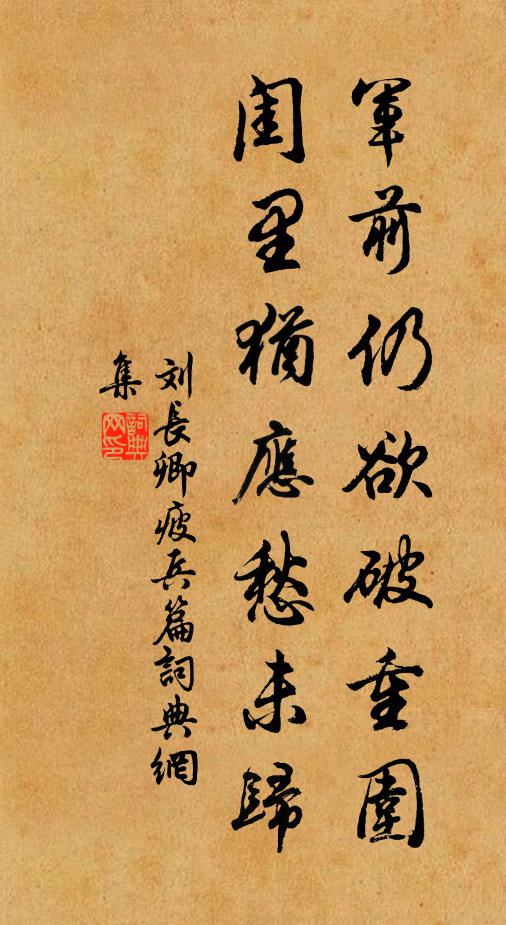 軍前仍欲破重圍
閨里猶應愁未歸
刘長卿疲兵篇詞典網
集
詞典
网印